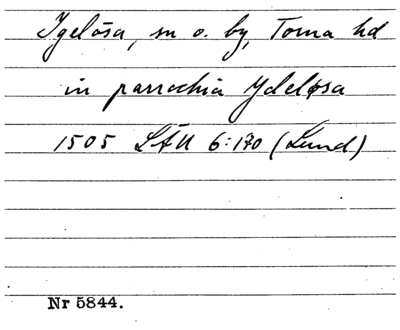 Igelösa, sn o. by, Torna hd
in parrochia Ydeløsa
1505 LÄU 6:170 (Lund)
Nr 5844.